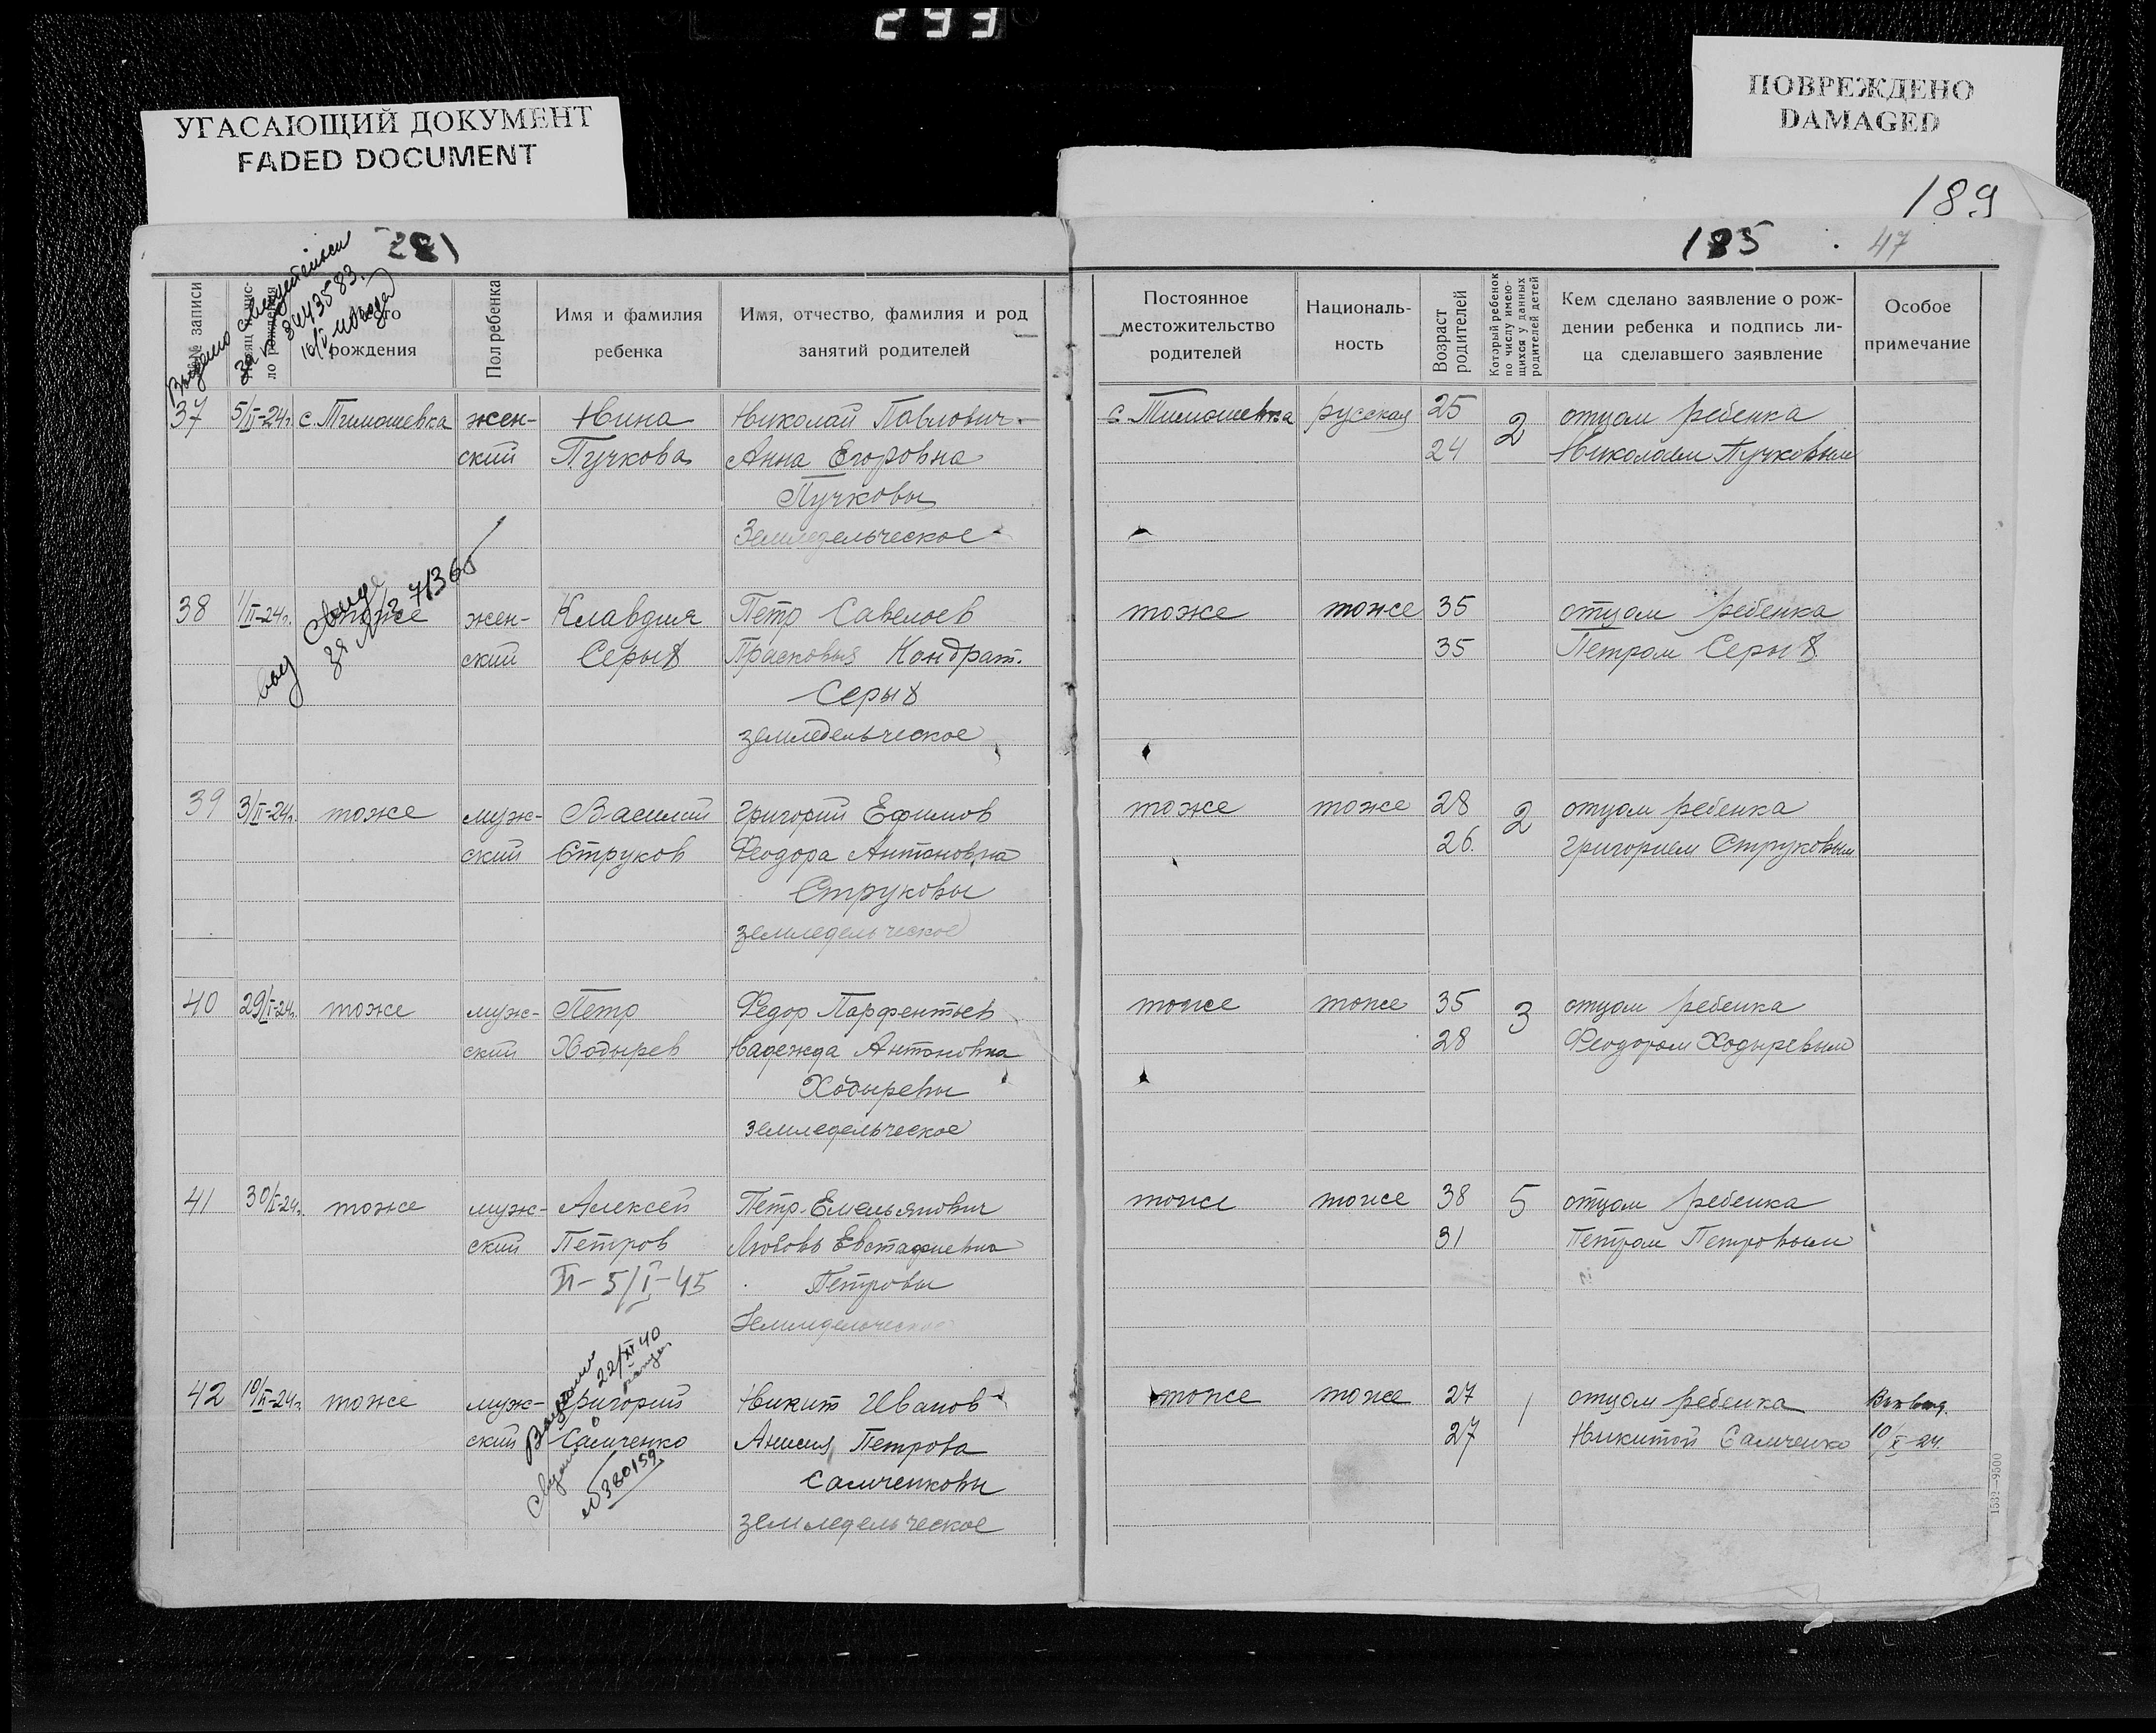 293
УГАСАЮЩИЙ ДОКУМЕНТ
FADED DOCUMENT
ПОВРЕЖДЕНО
DAMAGED
189
281
185
47
№ записи
рождения
Пол ребенка
Имя и фамилия
ребенка
Имя, отчество, фамилия и род
занятий родителей
Постоянное
местожительство
родителей
Националь-
ность
Возраст
родителей
Который ребенок
по числу имею-
щихся у данных
родителей детей
Кем сделано заявление о рож-
дении ребенка и подпись ли-
ца сделавшего заявление
Особое
примечание
Выдано свидетельси
за № 3443583.
37 5/II-24г. с. Тимошевка жен- Нина Николай Павлович с. Тимошевка русская 25 2 отцом ребенка
ский Пучкова Анна Егоровна 24 Николаем Пучковым
Пучковы
Земледельческое
выд свид
за № 71366
38 1/II-24г. тоже жен- Клавдия Петр Савельев тоже тоже 35 отцом ребенка
ский Серых Прасковья Кондрат. 35 Петром Серых
Серых
земледельческое
39 3/II-24г. тоже муж- Василий Григорий Ефимов тоже тоже 28 2 отцом ребенка
ский Струков Феодора Антоновна 26. Григорием Струковым
Струковы
земледельческое
40 29/I-24г. тоже муж- Петр Федор Парфентьев тоже тоже 35 3 отцом ребенка
ский Ходырев Надежда Антоновна 28 Феодором Ходыревым
Ходыревы
земледельческое
41 30/I-24г. тоже муж- Алексей Петр Емельянович тоже тоже 38 5 отцом ребенка
ский Петров Любовь Евстафиевна 31 Петром Петровым
П-5/I-45 Петровы
Земледельческое
22/XI 40
42 10/II-24г. тоже муж- Григорий Никит Иванов тоже тоже 27 1 отцом ребенка
ский Самченко Анисия Петрова 27 Никитой Самченко 10/X-24.
№380159
Самченковы
земледельческое
1532—9500